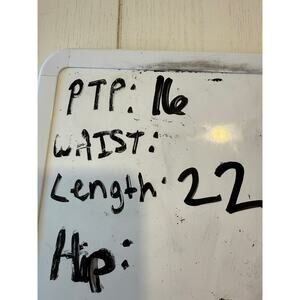 PTP: 16
WAIST:
Length: 22
Hip: